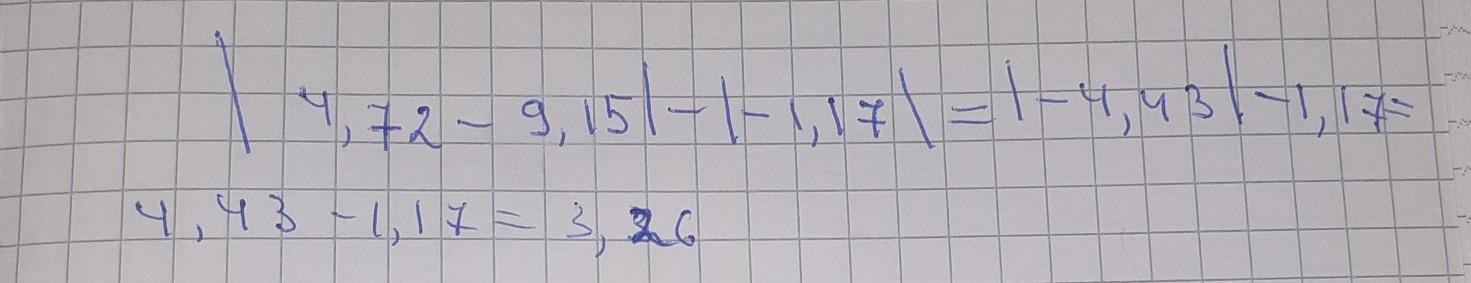 | 4,72 - 9,15| - |-1,17| = |-4,43| - 1,17 =
4,43 - 1,17 = 3,26